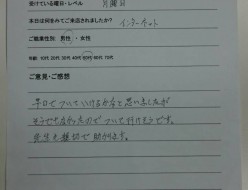 受けている曜日・レベル 月曜日
本日は何をみてご来店されましたか? インターネット
ご職業性別: 男性 ・ 女性
年齢: 10代 20代 30代 40代 50代 60代 70代
ご意見・ご感想
早口でついていけるかなと思いましたが
そうでもなかったのでついて行けそうです。
先生も親切で助かります。